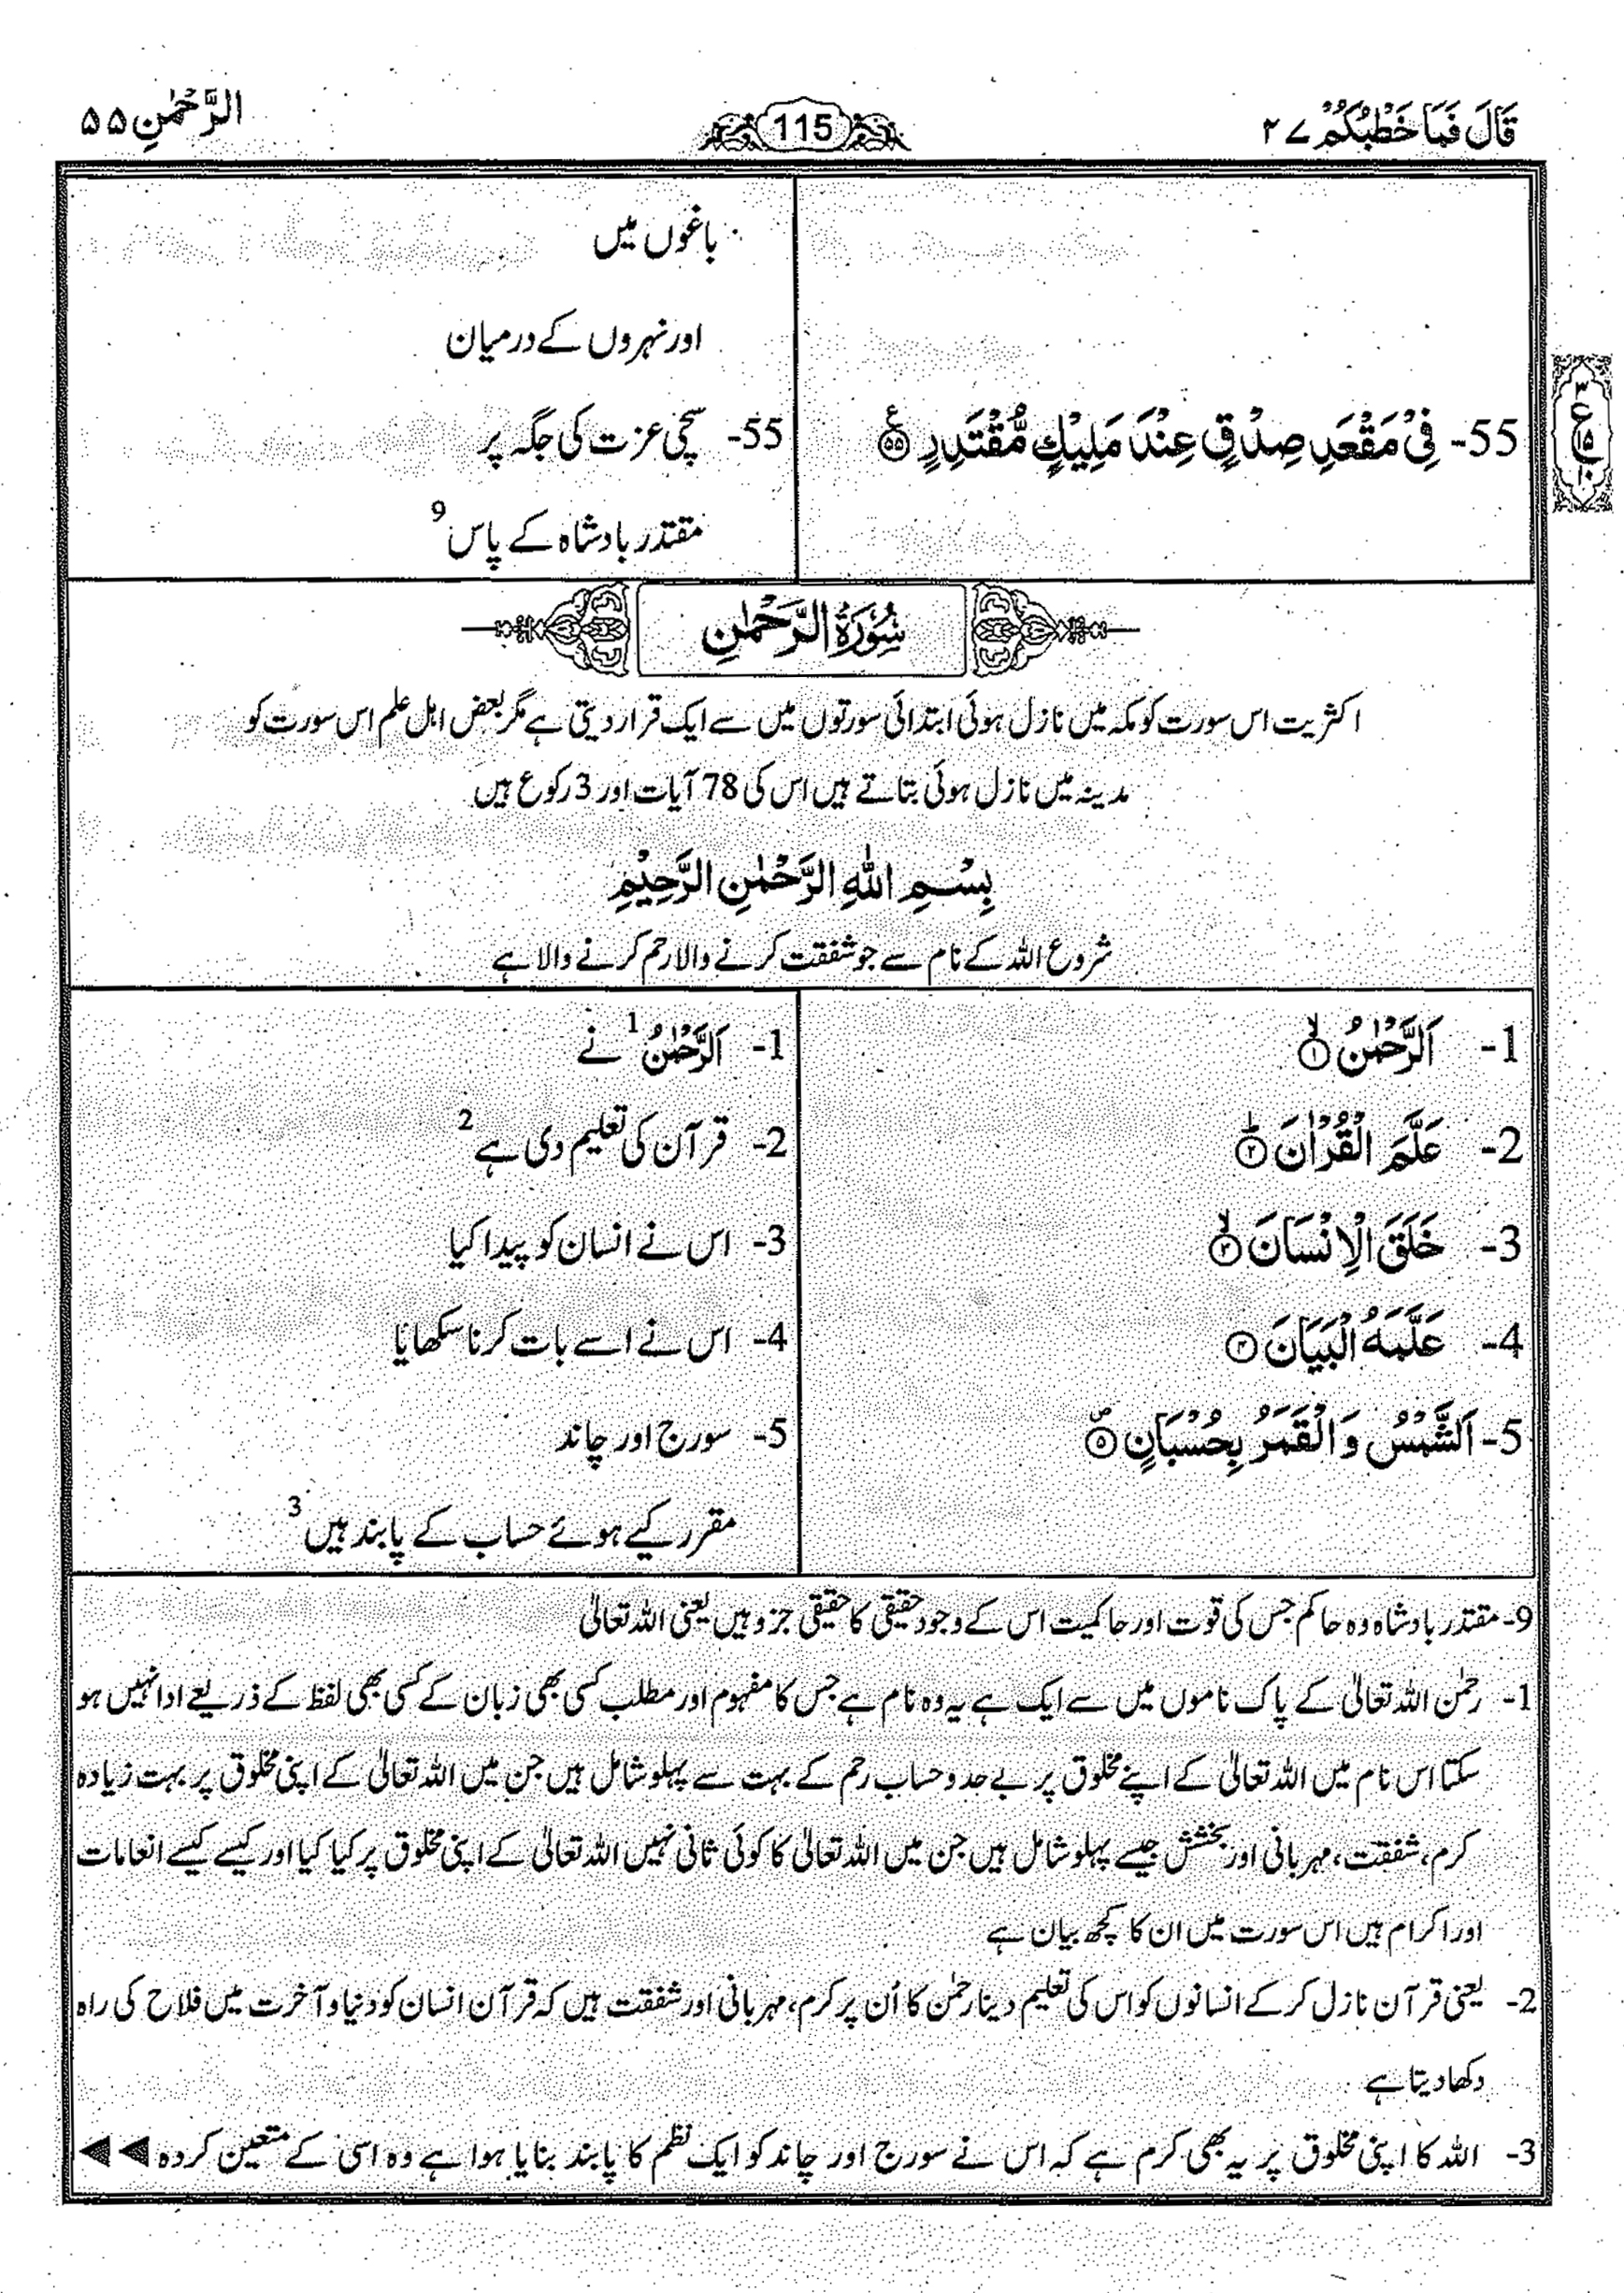 قَالَ فَمَا خَطْبُكُمْ ۲۷
115
الرَّحْمٰنِ ۵۵
باغوں میں
اور نہروں کے درمیان
55- فِیْ مَقْعَدِ صِدْقٍ عِنْدَ مَلِیْكٍ مُّقْتَدِرٍ ۵۵ ع
55- سچی عزت کی جگہ پر
مقتدر بادشاہ کے پاس 9
۳
ع
۱۵
۱۰
سُوْرَةُ الرَّحْمٰنِ
اکثریت اس سورت کو مکہ میں نازل ہوئی ابتدائی سورتوں میں سے ایک قرار دیتی ہے مگر بعض اہل علم اس سورت کو
مدینہ میں نازل ہوئی بتاتے ہیں اس کی 78 آیات اور 3 رکوع ہیں
بِسْمِ اللّٰهِ الرَّحْمٰنِ الرَّحِیْمِ
شروع اللہ کے نام سے جو شفقت کرنے والا رحم کرنے والا ہے
1- اَلرَّحْمٰنُ ۙ۱
1- اَلرَّحْمٰنُ 1 نے
2- عَلَّمَ الْقُرْاٰنَ ؕ۲
2- قرآن کی تعلیم دی ہے 2
3- خَلَقَ الْاِنْسَانَ ۙ۳
3- اس نے انسان کو پیدا کیا
4- عَلَّمَهُ الْبَیَانَ ۴
4- اس نے اسے بات کرنا سکھایا
5- اَلشَّمْسُ وَ الْقَمَرُ بِحُسْبَانٍ ۪۵
5- سورج اور چاند
مقرر کیے ہوئے حساب کے پابند ہیں 3
9- مقتدر بادشاہ وہ حاکم جس کی قوت اور حاکمیت اس کے وجود حقیقی کا حقیقی جزو ہیں یعنی اللہ تعالیٰ
1- رحمٰن اللہ تعالیٰ کے پاک ناموں میں سے ایک ہے یہ وہ نام ہے جس کا مفہوم اور مطلب کسی بھی زبان کے کسی بھی لفظ کے ذریعے ادا نہیں ہو
سکتا اس نام میں اللہ تعالیٰ کے اپنے مخلوق پر بے حد و حساب رحم کے بہت سے پہلو شامل ہیں جن میں اللہ تعالیٰ کے اپنی مخلوق پر بہت زیادہ
کرم، شفقت، مہربانی اور بخشش جیسے پہلو شامل ہیں جن میں اللہ تعالیٰ کا کوئی ثانی نہیں اللہ تعالیٰ کے اپنی مخلوق پر کیا کیا اور کیسے کیسے انعامات
اور اکرام ہیں اس سورت میں ان کا کچھ بیان ہے
2- یعنی قرآن نازل کر کے انسانوں کو اس کی تعلیم دینا رحمٰن کا اُن پر کرم، مہربانی اور شفقت ہیں کہ قرآن انسان کو دنیا و آخرت میں فلاح کی راہ
دکھا دیتا ہے
3- اللہ کا اپنی مخلوق پر یہ بھی کرم ہے کہ اس نے سورج اور چاند کو ایک نظم کا پابند بنایا ہوا ہے وہ اسی کے متعین کردہ ◀◀